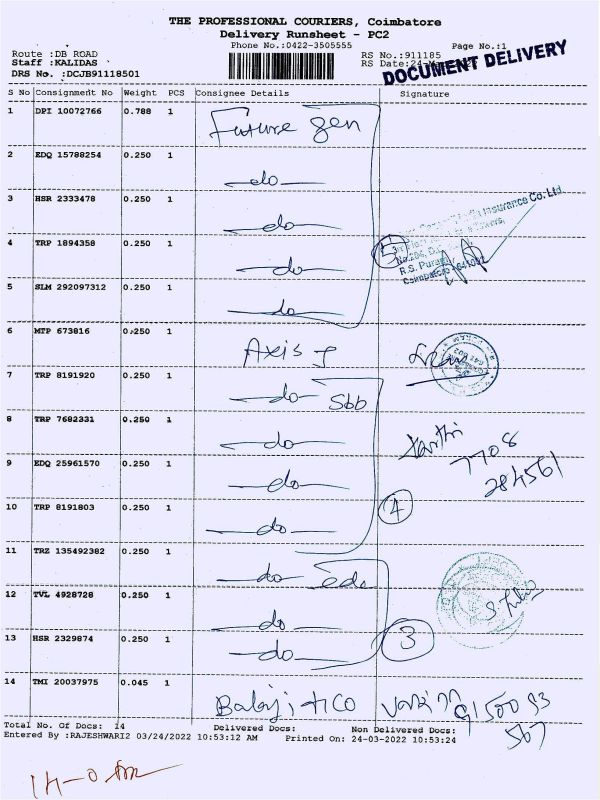 THE PROFESSIONAL COURIERS, Coimbatore
Delivery Runsheet - PC2
Phone No.:0422-3505555 Page No.:1
Route :DB ROAD RS No.:911185
Staff :KALIDAS RS Date:24-
DRS No. :DCJB91118501
DOCUMENT DELIVERY
S No Consignment No Weight PCS Consignee Details Signature
1 DPI 10072766 0.788 1 Future gen
2 EDQ 15788254 0.250 1 do
3 HSR 2333478 0.250 1 do
Insurance Co. Ltd
4 TRP 1894358 0.250 1 do 5
R.S. Puram
Coimbatore - 641002
5 SLM 292097312 0.250 1 do
6 MTP 673816 0.250 1 Axis
7 TRP 8191920 0.250 1 do Sbb
8 TRP 7682331 0.250 1 do
7708
284561
9 EDQ 25961570 0.250 1 do
10 TRP 8191803 0.250 1 do 4
11 TRZ 135492382 0.250 1 do
12 TVL 4928728 0.250 1 do
13 HSR 2329874 0.250 1 do 3
14 TMI 20037975 0.045 1 Balaji
Total No. Of Docs: 14 Delivered Docs: Non Delivered Docs:
Entered By :RAJESHWARI2 03/24/2022 10:53:12 AM Printed On: 24-03-2022 10:53:24
567